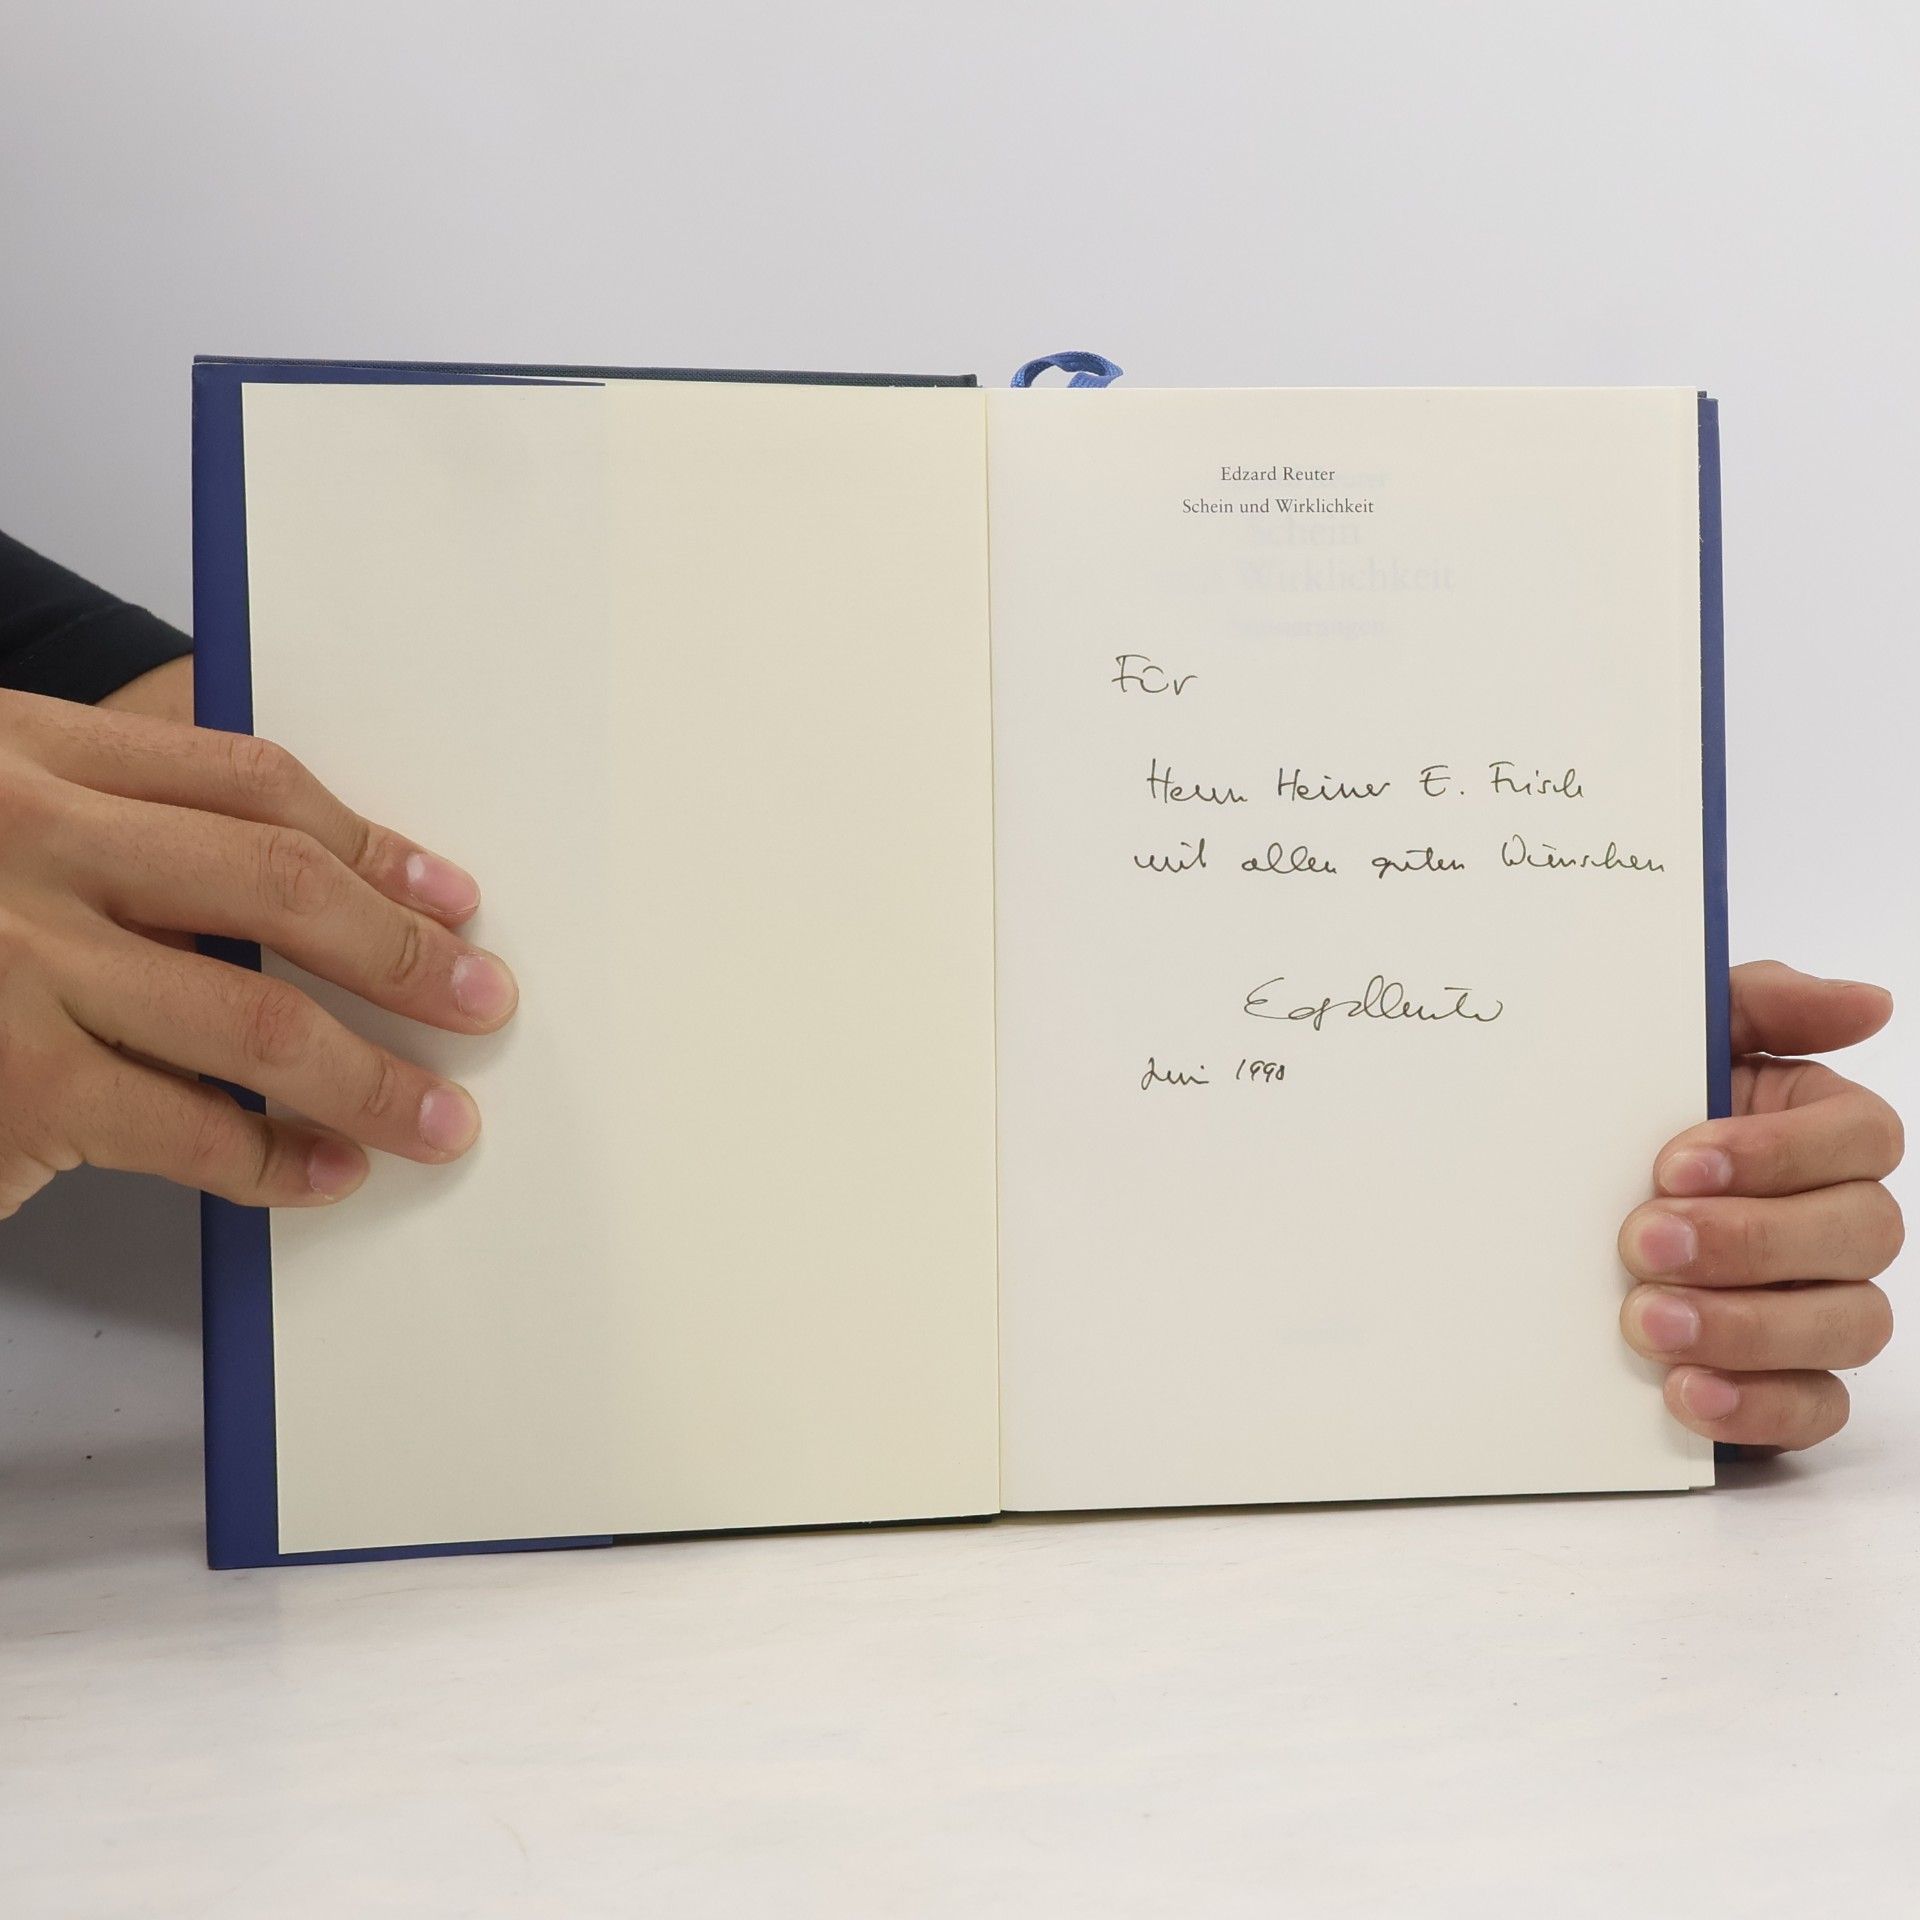 Edzard Reuter
Schein und Wirklichkeit
Schein
Wirklichkeit
Für
Herrn Heiner E. Frisch
mit allen guten Wünschen
Edzard Reuter
Juni 1998